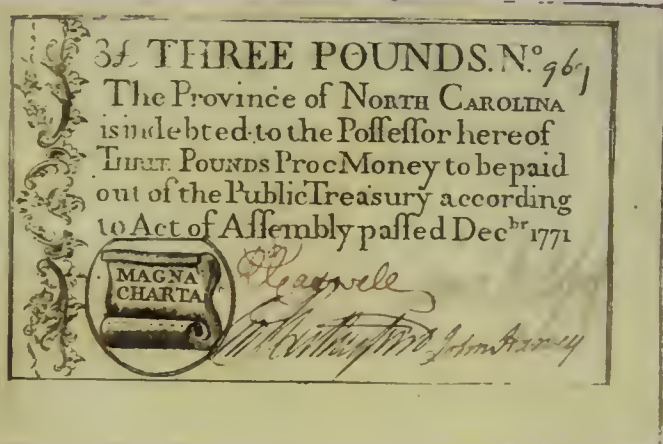 3£ THREE POUNDS. Nº 961
The Province of NORTH CAROLINA
is indebted to the Poſſeſſor hereof
THREE POUNDS Proc Money to be paid
out of the Public Treasury according
to Act of Aſſembly paſſed Decbr 1771
MAGNA
CHARTA
R Caswell
John Harvey